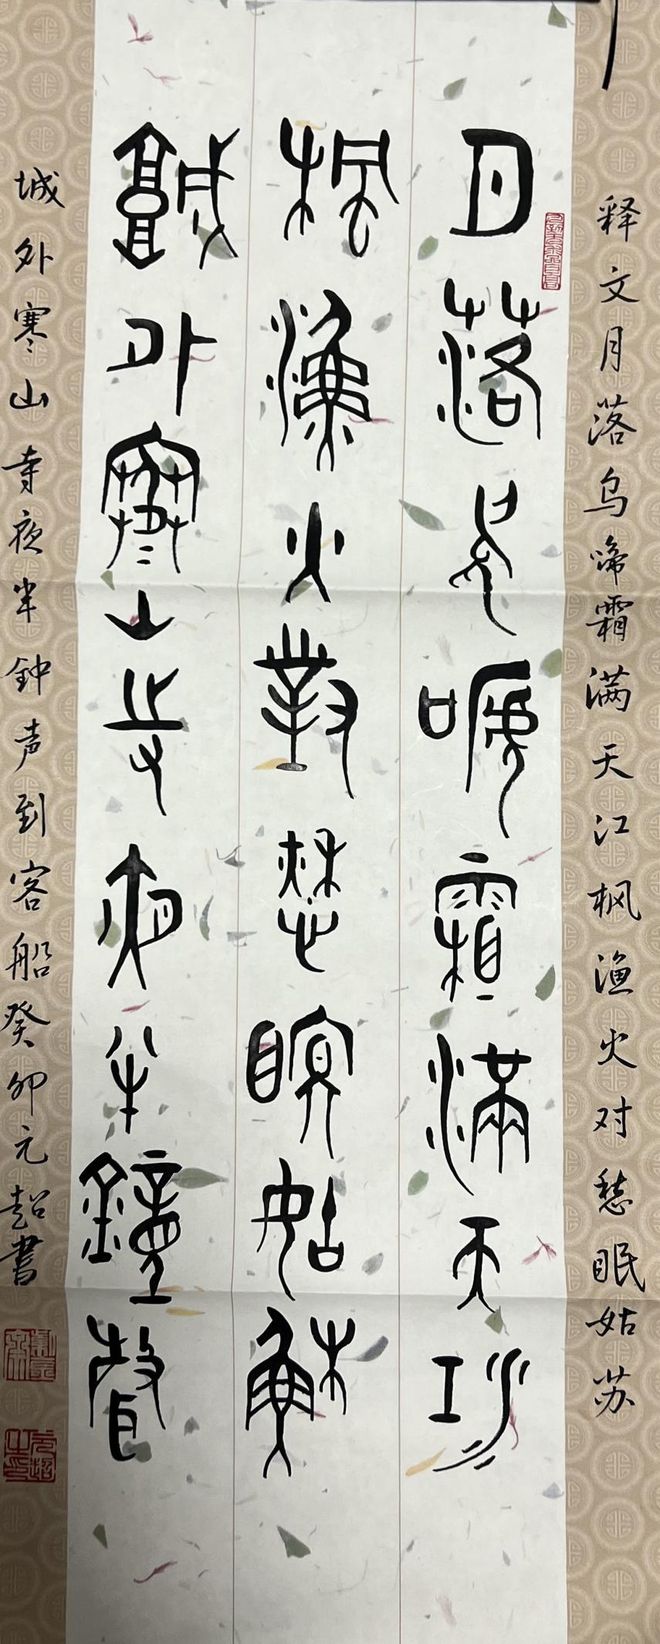 释文月落乌啼霜满天江枫渔火对愁眠姑苏
月落烏嗁霜滿天江
楓漁火對愁瞑姑穌
城外寒山寺夜半鐘聲
城外寒山寺夜半鈡声到客船癸卯元超書